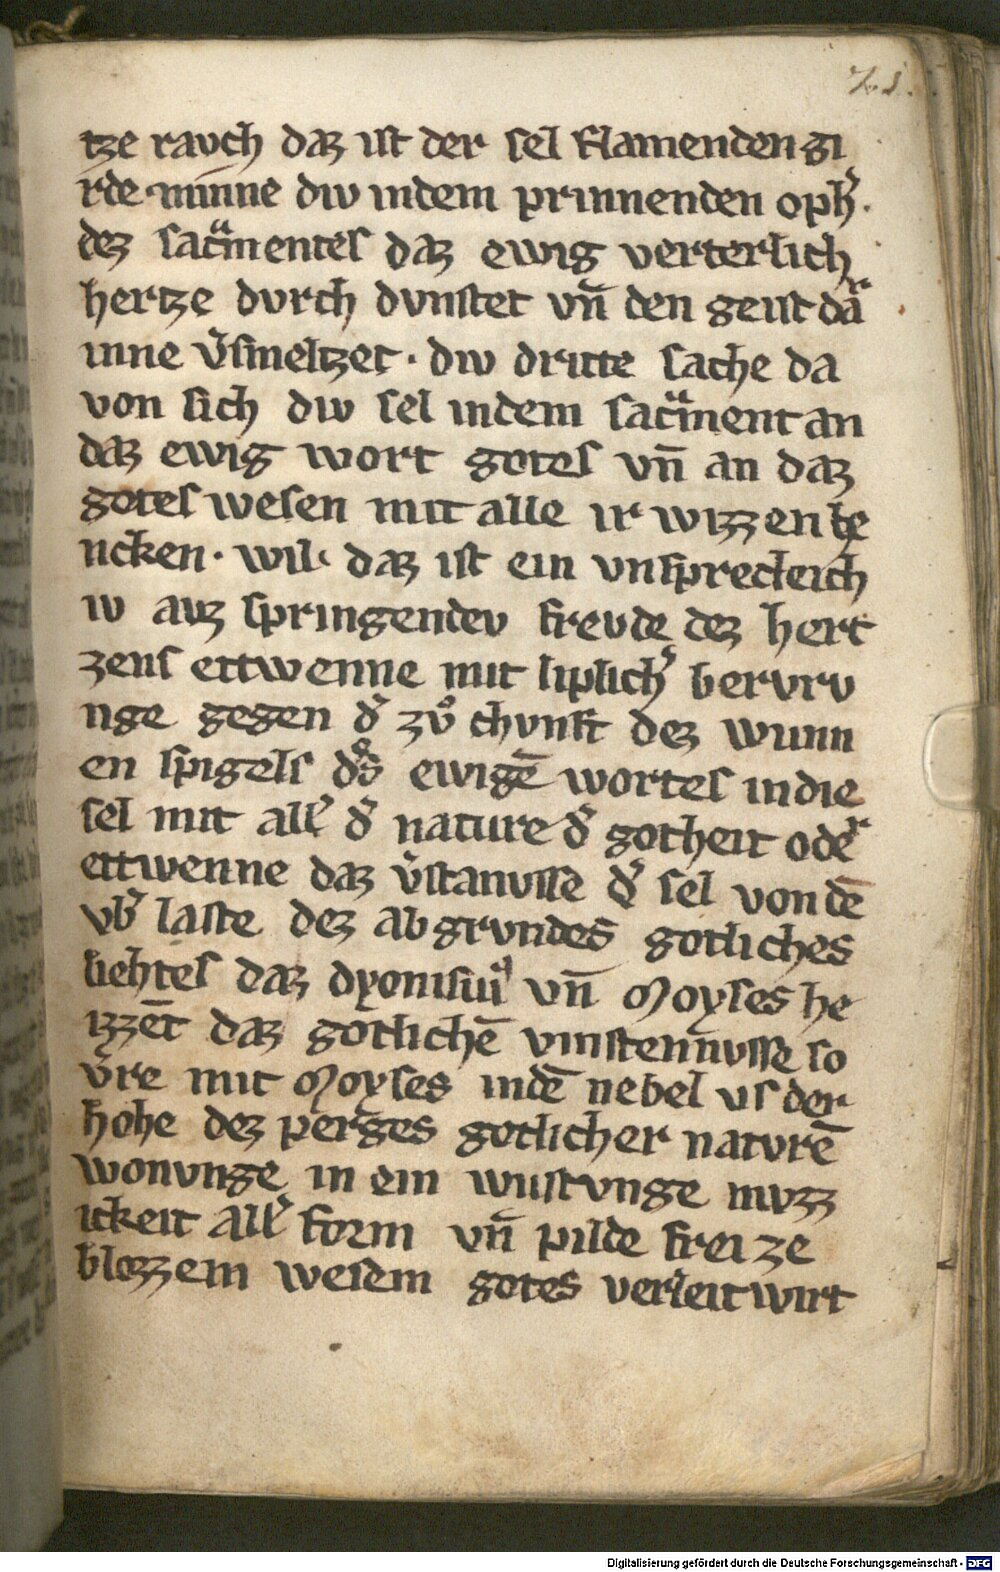 71.
tze rauch daz ist der sel flamenden gi
rde minne diw indem prinnenden oph̓.
dez sac̈mentes daz ewig verterlich
hertze durch dvnstet vn̄ den geist daͬ
inne v̓smeltzet · diw dritte sache da
von sich diw sel indem sac̈ment an
daz ewig wort gotes vn̄ an daz
gotes wesen mit alle ir wizzen be
ncken · wil · daz ist ein vnsprecleich
iw auz springendev frevde dez hert
zens ettwenne mit liplich̓ bervrv
nge gegen d̓ zvͦ chvnft dez wunn
en spigels des ewigē wortes indie
sel mit all̓ d̓ nature d̓ gotheit odeͬ
ettwenne daz v̓stanvsse d̓ sel von dē
vb̓ laste dez abgrvndes gotliches
liehtes daz dyonisius vn̄ Moyses he
izzēt daz gotlichē vinstern̄vsse so
v̓re mit Moyses indē nebel vf der
hohe dez perges gotlicher natvrē
wonvnge in ein wustvnge mvzz
ickeit all̓ form vn̄ pilde frei ze
blozzem wesem gotes verleit wirt
Digitalisierung gefördert durch die Deutsche Forschungsgemeinschaft - DFG